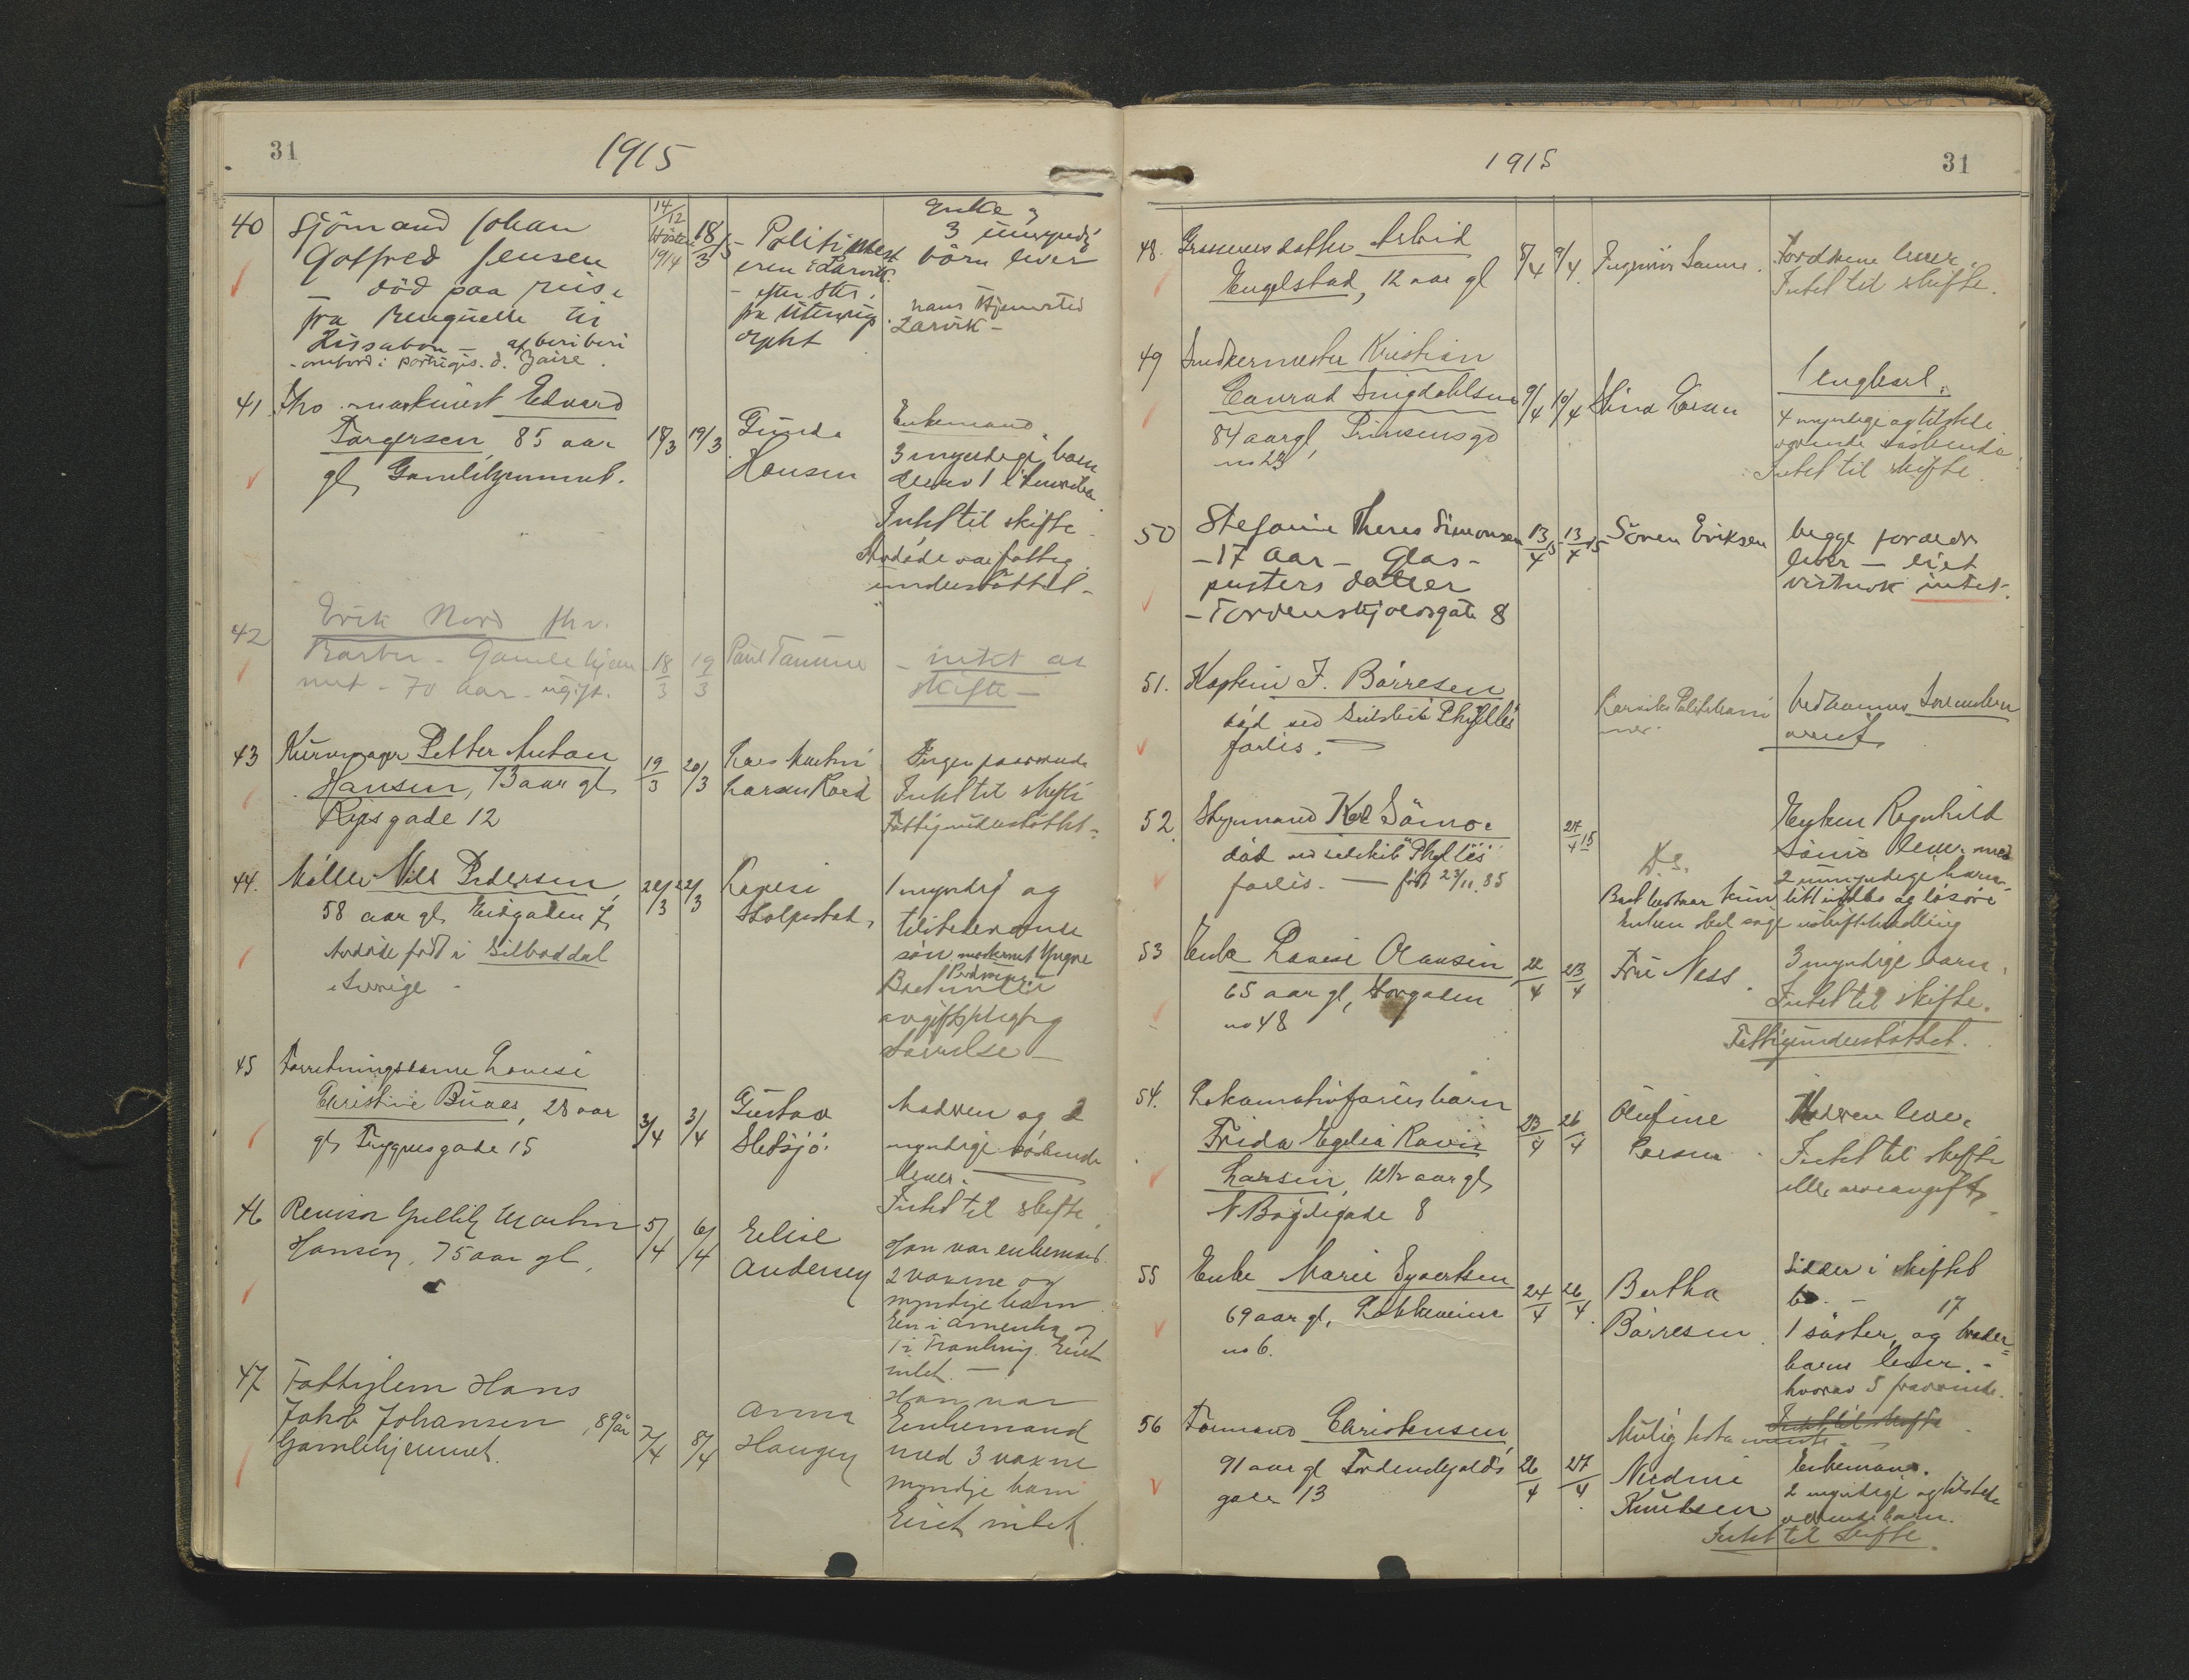 31
1915
40
Sjömand Johan
Gotfred Jensen
död paa reise
fra Benguella til
Lissabon - af beriberi
- ombord i portugis. d. Zaire.
14/12
1914
18/3 15
- Politimest
eren i Larvik
- efter
fra Utenrigs
dpht
Enke &
3 umyndi
börn lever
hans Hjemsted
Larvik -
41. Fhv. maskinist Edvard
Torgersen, 85 aar
gl, Gamlehjemmet.
18/3
19/3
Gunda
Hansen
Enkemand
3 myndige barn
derav 1 i Amerika
Intet til skifte
Avdøde var fattig
understøttet -
42
Erik Nord fhv.
Barber - Gamlehjem
met - 70 aar - ugift.
18/3
19/3
Paul Tamme
- intet at
skifte -
43 Kurvmager Petter Anton
Hansen, 73 aar gl,
Kirkes gade 12
19/3
20/3
Lars Martin
Larsen Roed
Ingen paarørende
Intet til skifte
Fattigunderstøttet -
44. Møller Nils Pedersen
58 aar gl, Eidgaden 7
Avdøde født i Silboddal
i Sverige -
22/3
22/3
Lovise
Stolpestad
1 myndig og
tilstedeværende
søn, maskinist Yngve
Pedersen
Boet under
avgiftspligtig
størrelse -
45 Forretningsdame Lovise
Christine Buaas, 28 aar
gl, Tryggvesgade 15
3/4
3/4
Gustav
Sletsjö
Moderen og 2
myndige søskende
lever.
Intet til skifte.
46 Revisor Gullik Martin
Hansen, 75 aar gl,
5/4
6/4
Elise
Andersen
Han var enkemand.
2 voxne og
myndige barn
Een i Amerika og
1 i Eiet
intet. -
47 Fattiglem Hans
Jakob Johansen, 89 år
Gamlehjemmet.
7/4
8/4
Anna
Haugen
Han var
Enkemand
med 3 voxne
myndige barn
Eiet intet
1915
31
48. datter Astrid
Engelstad, 12 aar gl
8/4
9/4.
Ingeniör
Forældrene lever.
Intet til skifte.
49 Snedkermester Kristian
Conrad Sinigdahlsen
84 aar gl, Prinsensgd
no 23
9/4
10/4
Stina Larsen
Ungkarl.
4 myndige og tilstede
værende søskende
Intet til skifte.
50 Stefanie Theres Simonsen
- 17 aar - Glas-
pusters datter
- Tordenskjoldsgate 8
13/4 15
13/4 15
Sören Eriksen
begge forældre
lever - eiet
vistnok intet.
51. Kaptein F. Børresen
død ved Seilskib "Phyllis"
forlis. -
Larviks Politikam
mer.
Vedkommer Sorenskri
veriet
52. Styrmand Karl Sömoe
død ved seilskib "Phyllis"
forlis. - født 23/11.85
27/4 15
D.s.
Enken Ragnhild
Sömo lever med
2 umyndige barn.
Boet bestaar kun litt indbo og løsøre
Enken skal søge uskiftebevilling
53 Enke Lovise Olausen
65 aar gl, Torgaden
no 48
22/4
23/4
Fru Ness.
3 myndige barn.
Intet til skifte.
Fattigunderstøttet.
54. Lokomotivførers barn
Frida Egelia Ravn
Larsen, 12 1/2 aar gl,
N. Bøgdegade 8
23/4
26/4
Olufine
Larsen
Moderen lever
Intet til skifte
eller arveavgift
55 Enke Marie Syvertsen
69 aar gl, Løkkeveien
no 6.
24/4
26/4
Bertha
Børresen
Sidder i skiftet
bo. -
17
1 søster, og broder=
barn lever. -
hvorav 5 fraværende.
56 Formand Christensen
91 aar gl Tordenskjolds
gade 13
26/4
27/4
Mulig testamente. -
Intet til skifte
Nicdine
Knudsen
Enkemand.
2 myndige og tilstede
værende barn.
Intet til skifte.